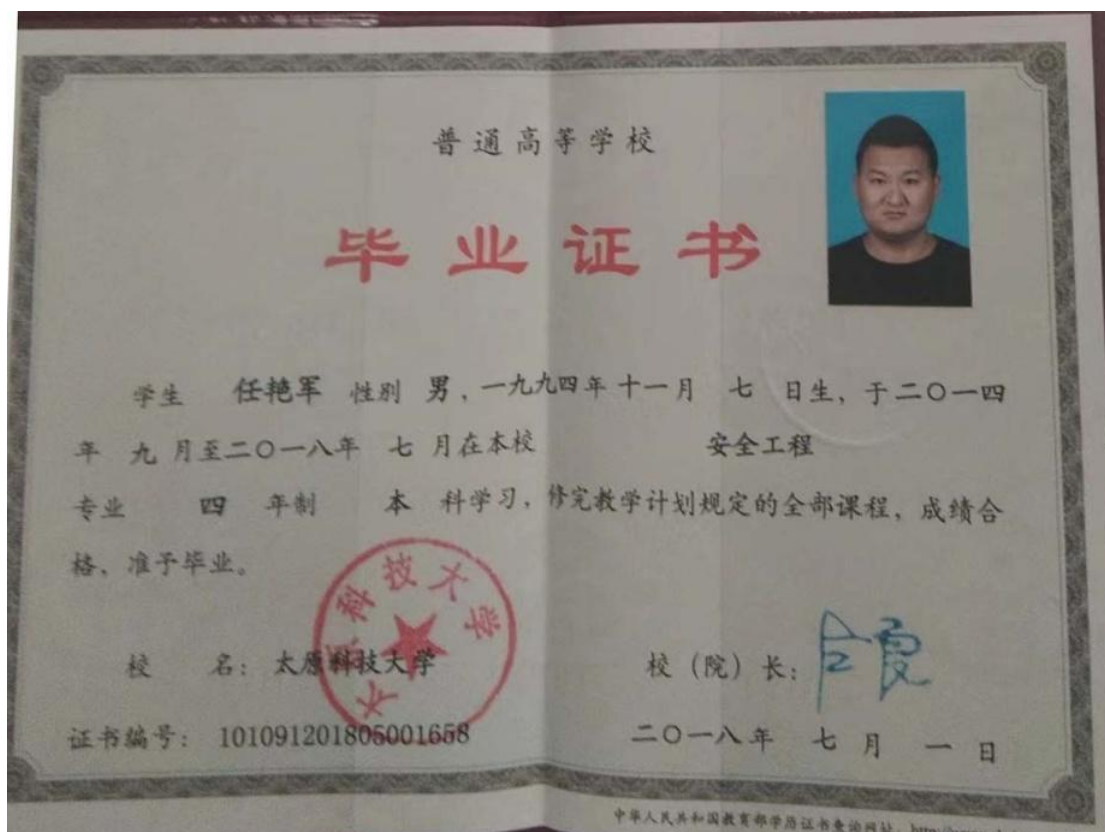 普通高等学校
毕业证书
学生 任艳军 性别 男，一九九四年十一月 七 日生，于二〇一四
年 九 月至二〇一八年 七 月在本校 安全工程
专业 四 年制 本 科学习，修完教学计划规定的全部课程，成绩合
格，准予毕业。
科技大学
校 名：太原科技大学
校（院）长：
证书编号：101091201805001658
二〇一八年 七 月 一 日
中华人民共和国教育部学历证书查询网址：http: